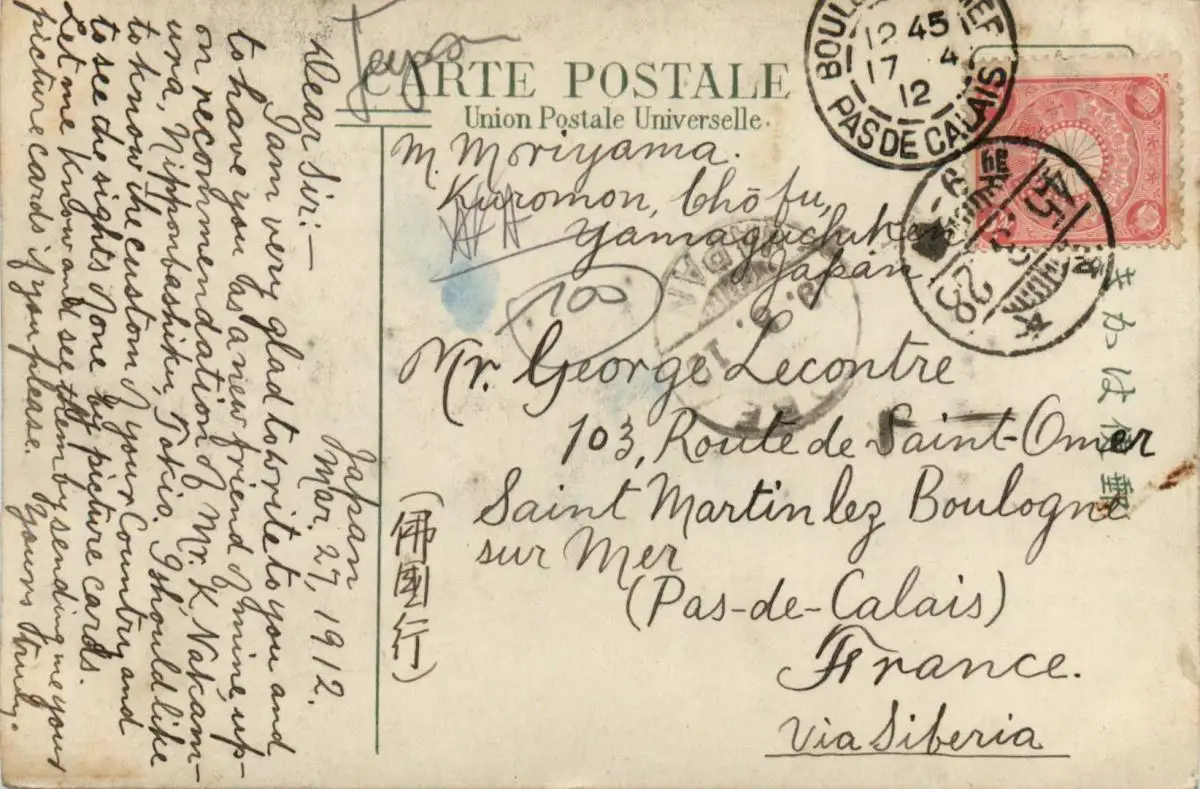 CARTE POSTALE
Union Postale Universelle.
M. Moriyama.
Kuromon, Chōfu,
Yamaguchiken
Japan
Mr. George Lecontre
103, Route de Saint-Omer
Saint Martin lez Boulogne
sur Mer
(Pas-de-Calais)
France.
via Siberia
(佛國行)
郵便はかき
Japan
Mar. 27, 1912.
Dear Sir:—
I am very glad to write to you and
to have you as a new friend of mine up-
on recommendation of Mr. K. Nakam-
ura, Nipponbashiku, Tokio. I should like
to know the custom of your Country and
to see the sights done by picture cards.
Let me know and see them by sending me your
picture cards if you please.
Yours truly.
100
12 45
17 4
12
PAS DE CALAIS
45
28